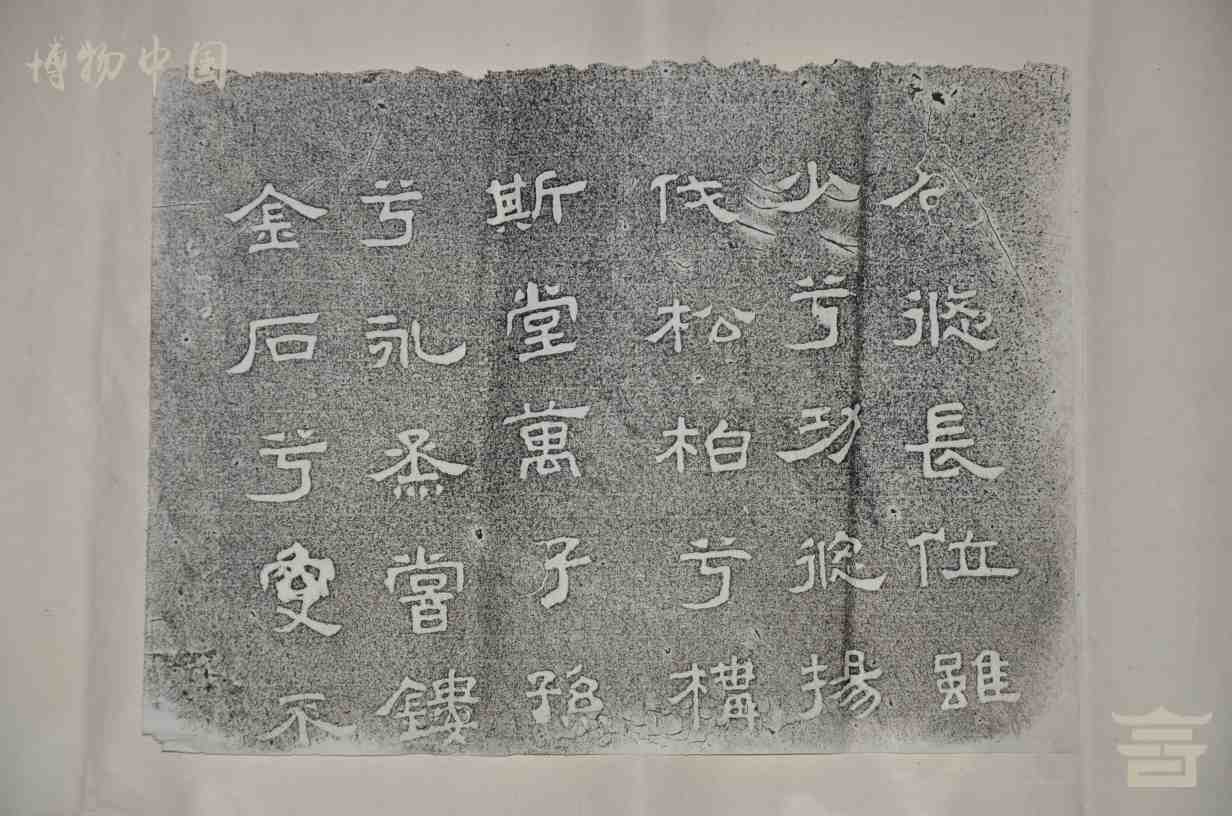 博物中国
名從長位雖
少兮功從揚
伐松柏兮構
斯堂萬子孫
兮永烝嘗鏤
金石兮不